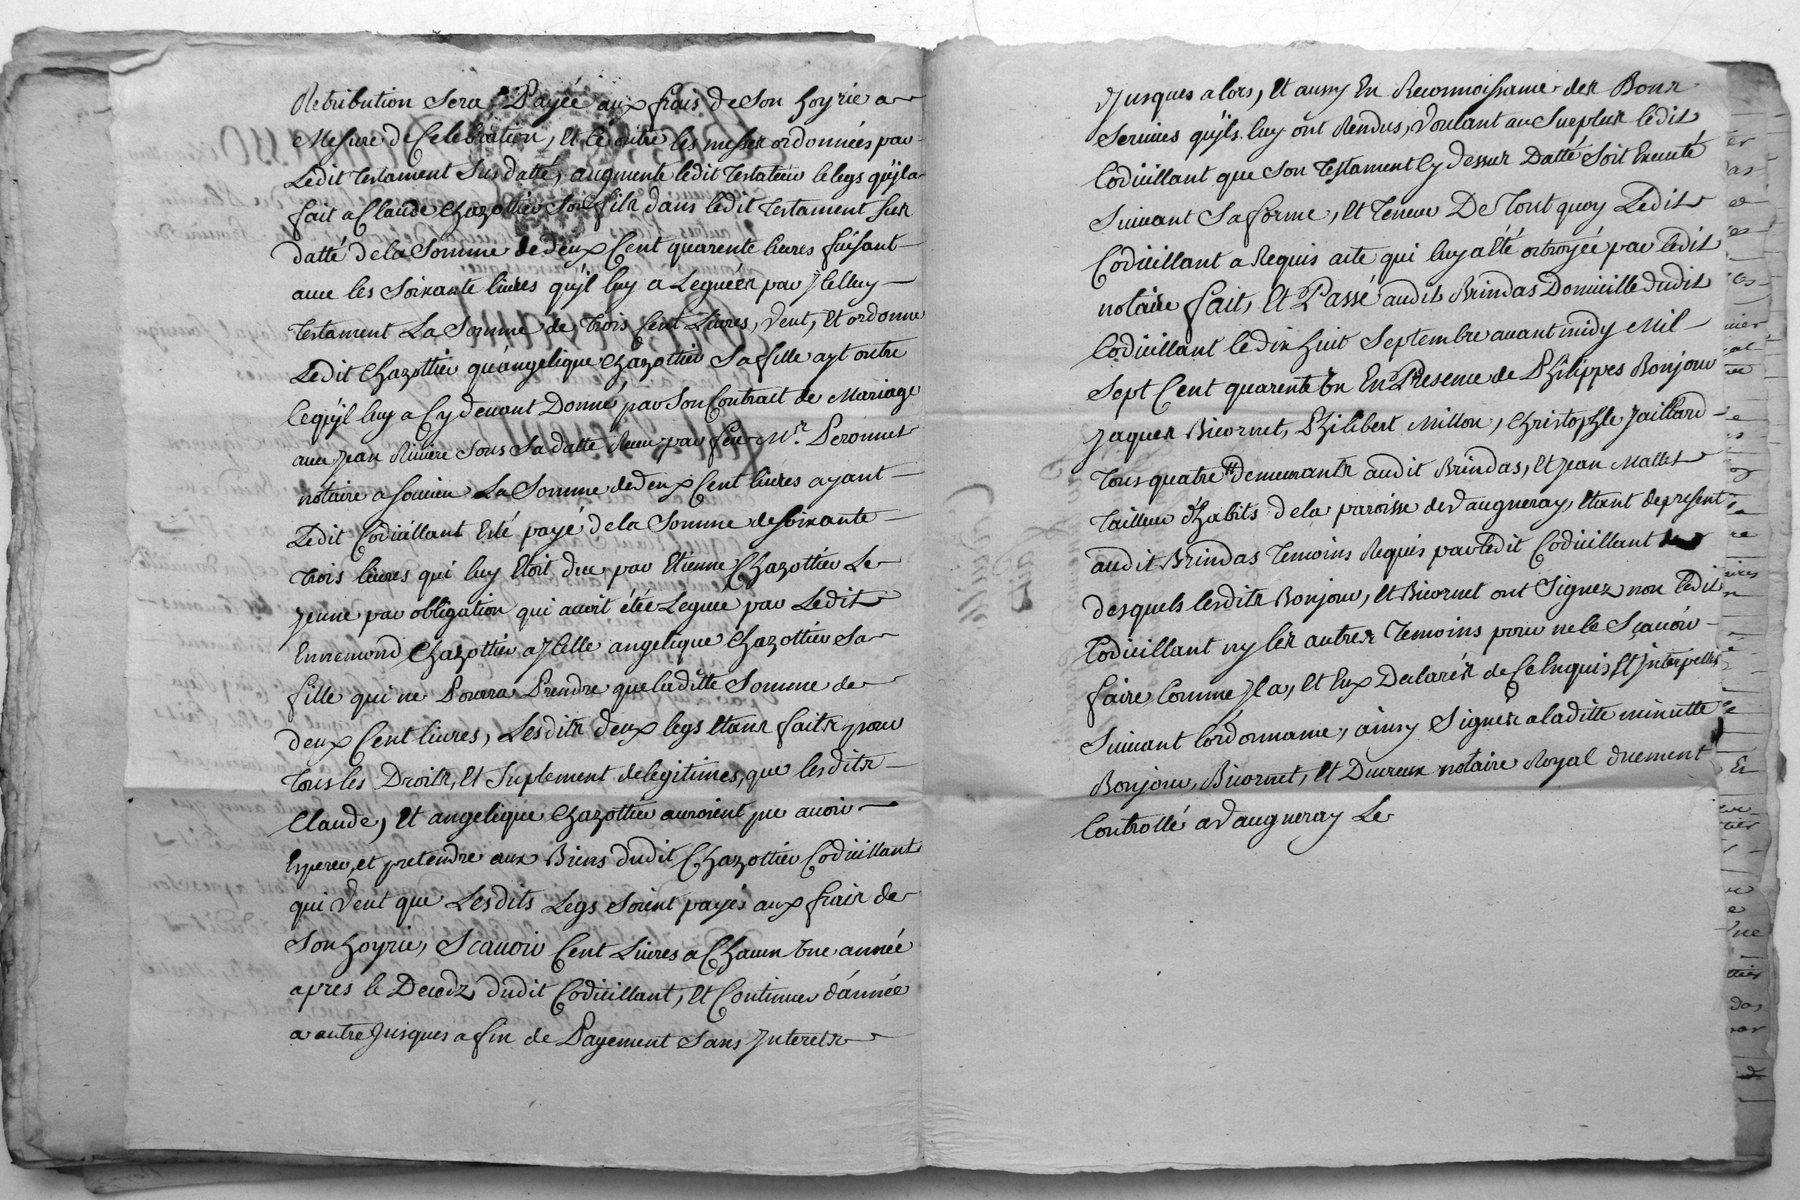 Retribution Sera Payée aux frais de Son hoyrie a
Mesure de Celebration, Et ce outre les messes ordonnées par
Ledit testament Susdatté, augmente ledit Testateur le legs qu'jl a
fait a Claude Chazottier Son fils dans ledit Testament Sus
datté de la Somme de deux Cent quarente livres faisant
avec les Soixante livres qu'jl luy a Leguées par Jcelluy
Testament La Somme de Trois Cent Livres, Veut, Et ordonne
Ledit Chazottier qu'angelique Chazottier Sa fille ayt outre
le qu'jl luy a Cy devant Donné par Son Contract de Mariage
avec Jean Riviere Sous Sa datte Receu par feu Mr. Peronnet
notaire a Soucieu La Somme de deux Cent livres ayant
Ledit Codicillant Eté payé de la Somme de Soixante
trois livres qui luy Etoit due par Etienne Chazottier Le
Jeune par obligation qui avoit étée Leguée par Ledit
Ennemond Chazottier a Jcelle angelique Chazottier Sa
fille qui ne Pourra Prendre que laditte Somme de
deux Cent livres, Lesdits deux legs Etans faits pour
tous les Droits, Et Suplement de legitimes, que lesdits
Claude, Et angelique Chazottier auroient pu avoir
Esperer, et pretendre aux Biens dudit Chazottier Codicillant
qui Veut que Lesdits Legs Soient payés aux frais de
Son hoyrie, Scavoir Cent Livres a Chacun Une année
apres le Decedz dudit Codicillant, Et Continuer d'année
a autre Jusques a fin de Payement Sans Jnterets
Jusques alors, Et aussy En Reconnoissance des Bons
Services qu'jls luy ont Rendus, Voulant au Surplus ledit
Codicillant que Son Testament Cy dessus Datté Soit Executé
Suivant Sa forme, Et Teneur De Tout quoy Ledit
Codicillant a Requis acte qui luy a Eté octroyée par ledit
notaire fait, Et Passé audit Brindas Domicille dudit
Codicillant le dix huit Septembre avant midy Mil
Sept Cent quarente Un En Presence de Philippes Bonjour
Jaques Bicornet, Philibert Millon, Christophle Jaillard
Tous quatre demeurants audit Brindas, Et Jean Mallet
Tailleur d'habits de la paroisse de Vaugneray Etant de present
audit Brindas Temoins Requis par ledit Codicillant
desquels lesdits Bonjour, Et Bicornet ont Signez non ledit
Codicillant ny les autres Temoins pour ne le Sçavoir
faire Comme Jl a, Et Eux Declarés de Ce Enquis Et Jnterpellés
Suivant l'ordonnance, ainsy Signés a laditte minutte
Bonjour, Bicornet, Et Ducreux notaire Royal duement
Controllé a Vaugneray Le